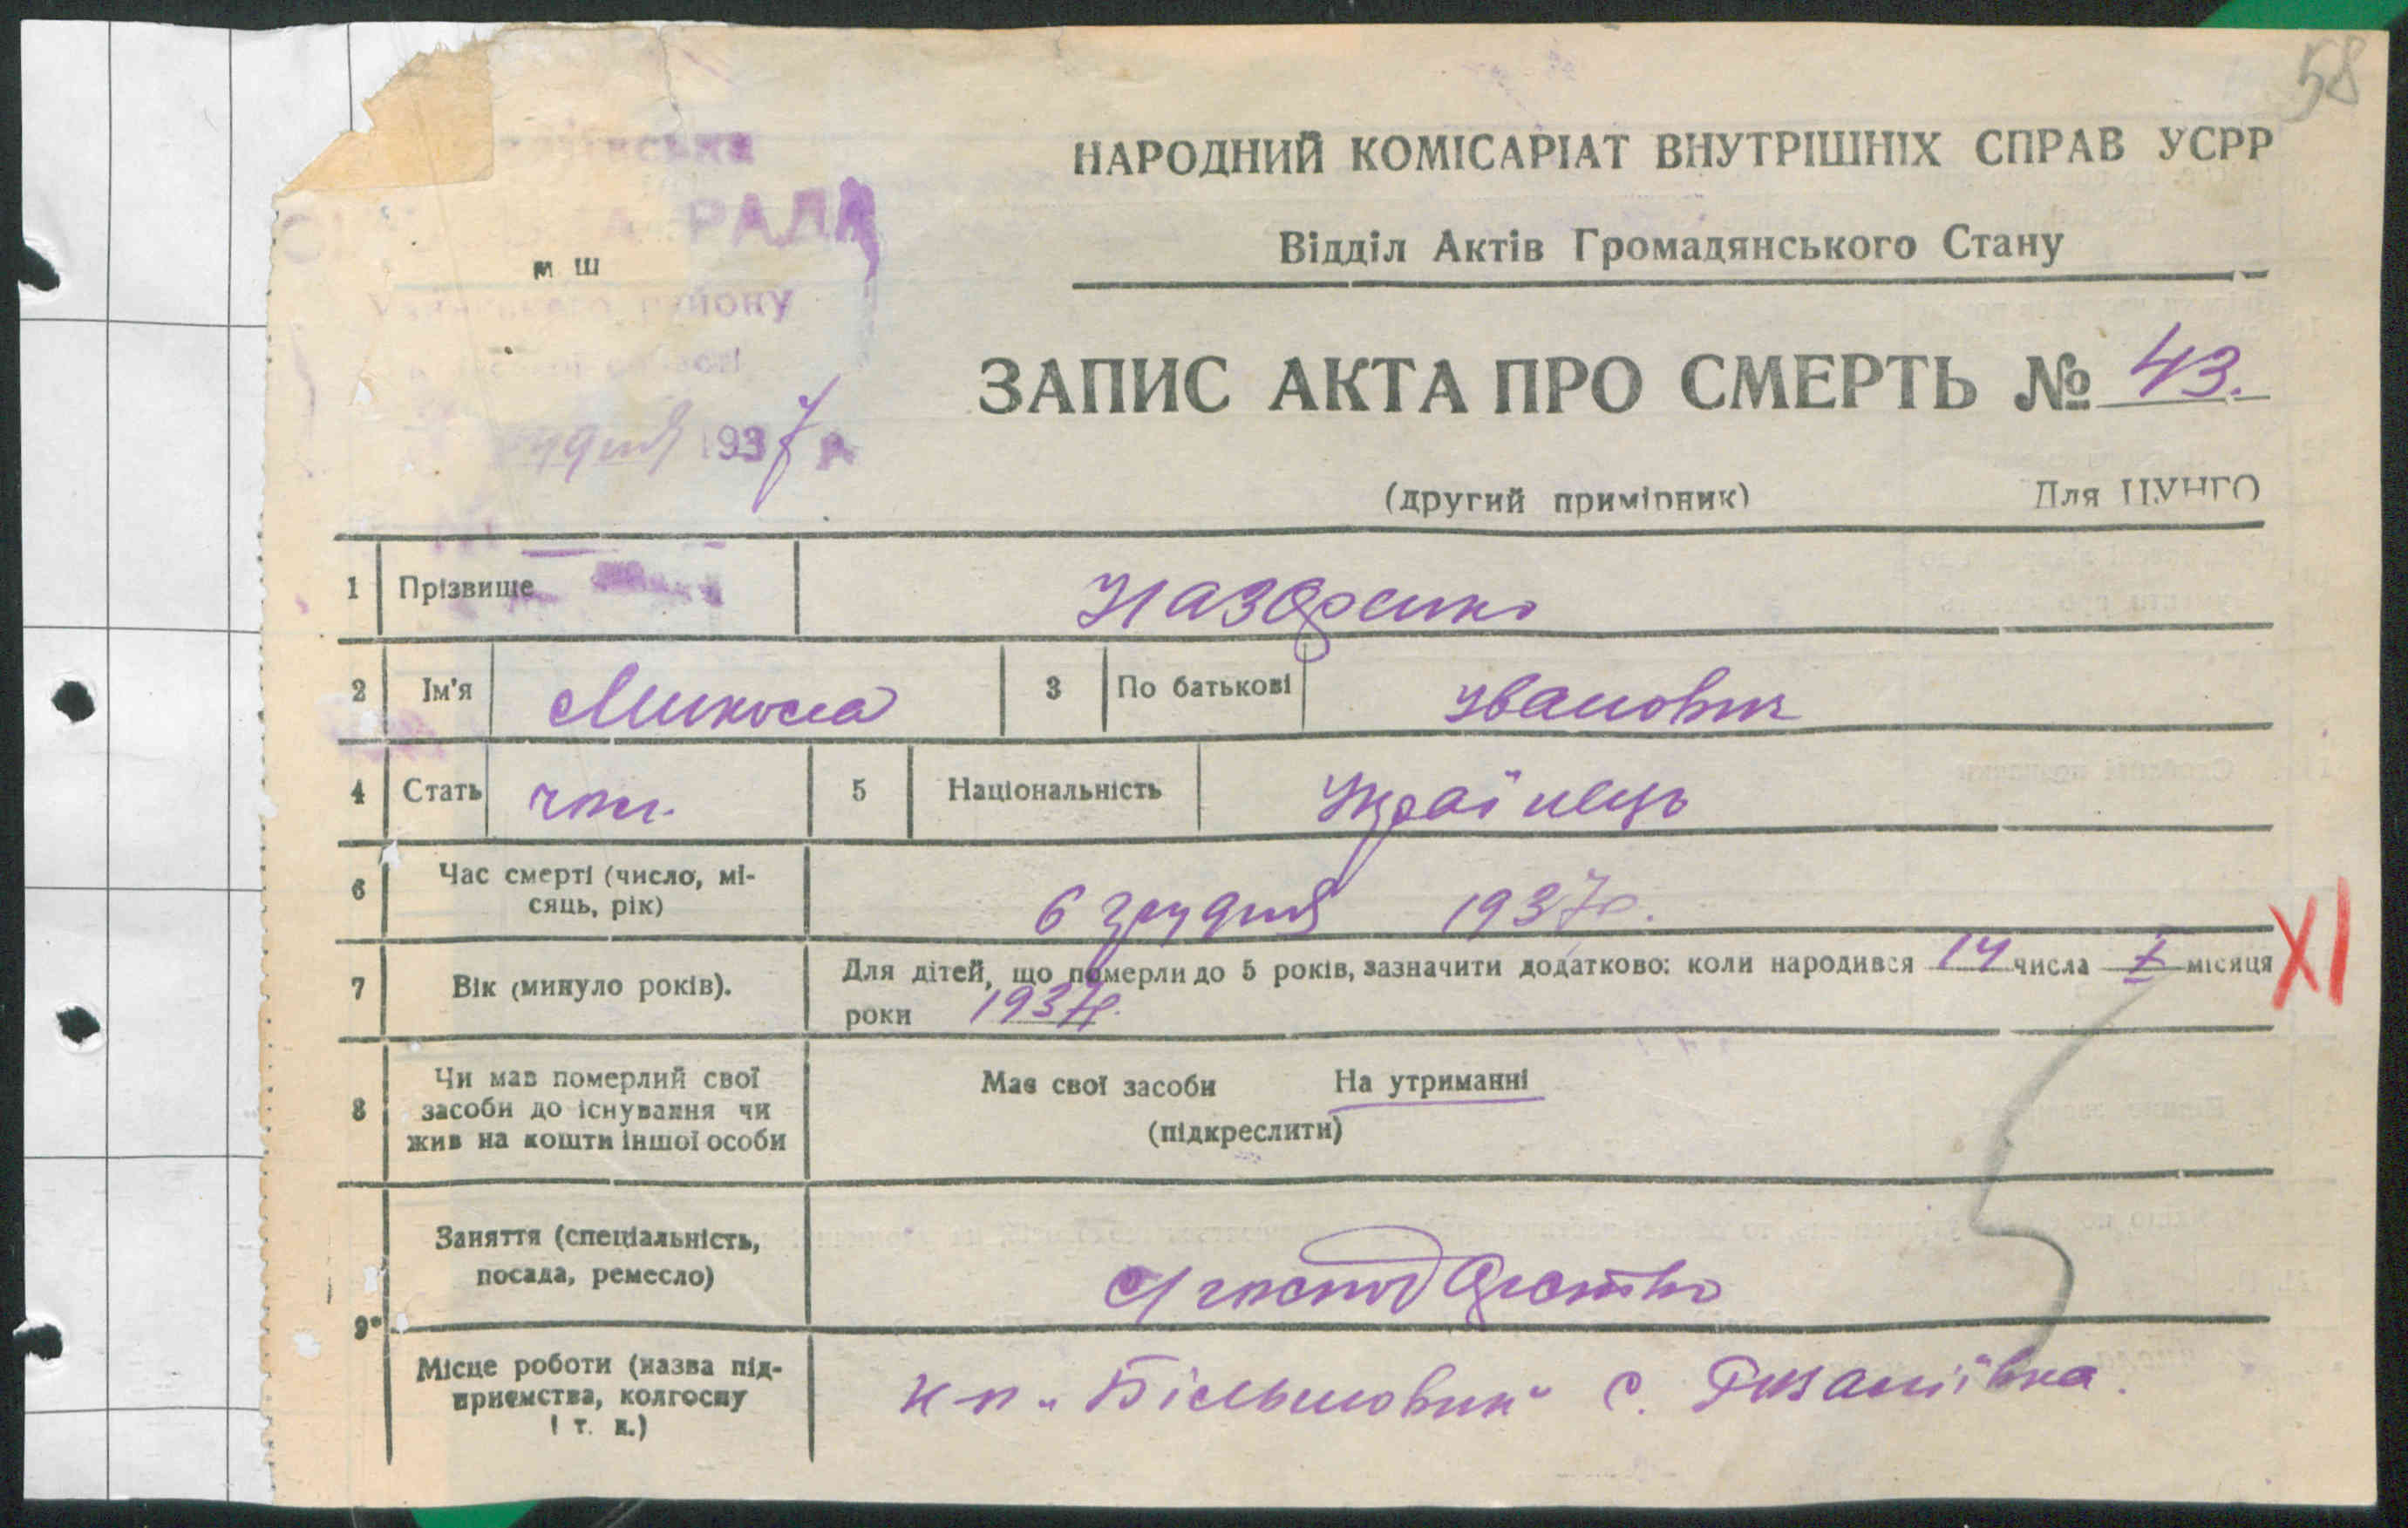 58
НАРОДНИЙ КОМІСАРІАТ ВНУТРІШНІХ СПРАВ УСРР
Відділ Актів Громадянського Стану
РАДА
м Ш
району
грудня 1937 р
ЗАПИС АКТА ПРО СМЕРТЬ № 43.
(другий примірник) Для ЦУНГО
1 Прізвище Наздренко
2 Ім'я Микола 3 По батькові Іванович
4 Стать чол. 5 Національність Українець
6 Час смерті (число, мі-
сяць, рік) 6 грудня 1937р.
7 Вік (минуло років). Для дітей, що померли до 5 років, зазначити додатково: коли народився 14 числа X місяця XI
роки 1937р.
8 Чи мав померлий свої
засоби до існування чи
жив на кошти іншої особи
Має свої засоби На утриманні
(підкреслити)
9 Заняття (спеціальність,
посада, ремесло) с/господарство
Місце роботи (назва під-
приємства, колгоспу
і т. и.) к-п „Більшовик" с. Ризаніївка.